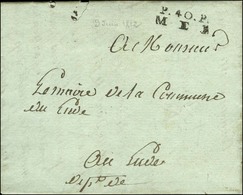 P. 40. P.
MEL
A Monsieur
Le maire de la Commune
du Lude
Au Lude
Dép.t de